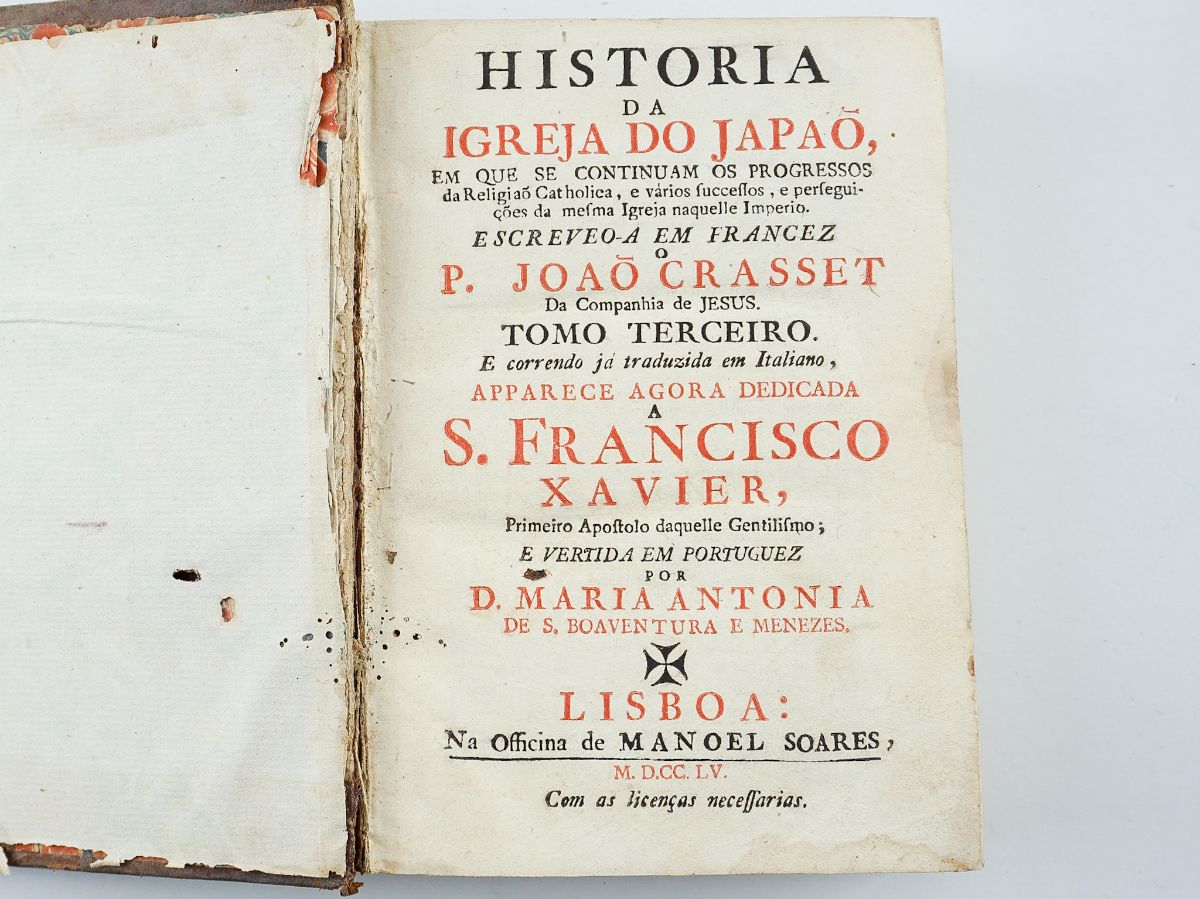 HISTORIA
DA
IGREJA DO JAPAÕ,
EM QUE SE CONTINUAM OS PROGRESSOS
da Religiaõ Catholica, e vários ſucceſſos, e perſegui-
ções da meſma Igreja naquelle Imperio.
ESCREVEO-A EM FRANCEZ
O
P. JOAÕ CRASSET
Da Companhia de JESUS.
TOMO TERCEIRO.
E correndo já traduzida em Italiano,
APPARECE AGORA DEDICADA
A
S. FRANCISCO
XAVIER,
Primeiro Apoſtolo daquelle Gentiliſmo;
E VERTIDA EM PORTUGUEZ
POR
D. MARIA ANTONIA
DE S. BOAVENTURA E MENEZES.
LISBOA:
Na Officina de MANOEL SOARES,
M. D.CC. LV.
Com as licenças neceſſarias.